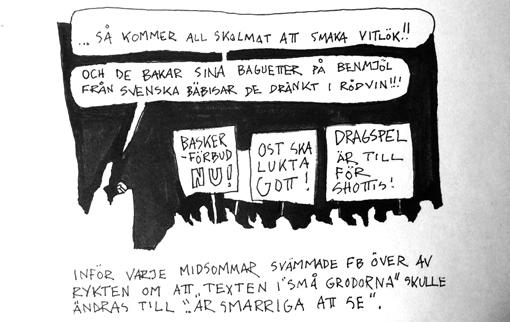 ... SÅ KOMMER ALL SKOLMAT ATT SMAKA VITLÖK!!
OCH DE BAKAR SINA BAGUETTER PÅ BENMJÖL
FRÅN SVENSKA BÄBISAR DE DRÄNKT I RÖDVIN!!!
BASKER
-FÖRBUD
NU!
OST SKA
LUKTA
GOTT!
DRAGSPEL
ÄR TILL
FÖR
SHOTTIS!
INFÖR VARJE MIDSOMMAR SVÄMMADE FB ÖVER AV
RYKTEN OM ATT "TEXTEN I "SMÅ GRODORNA" SKULLE
ÄNDRAS TILL "ÄR SMARRIGA ATT SE".